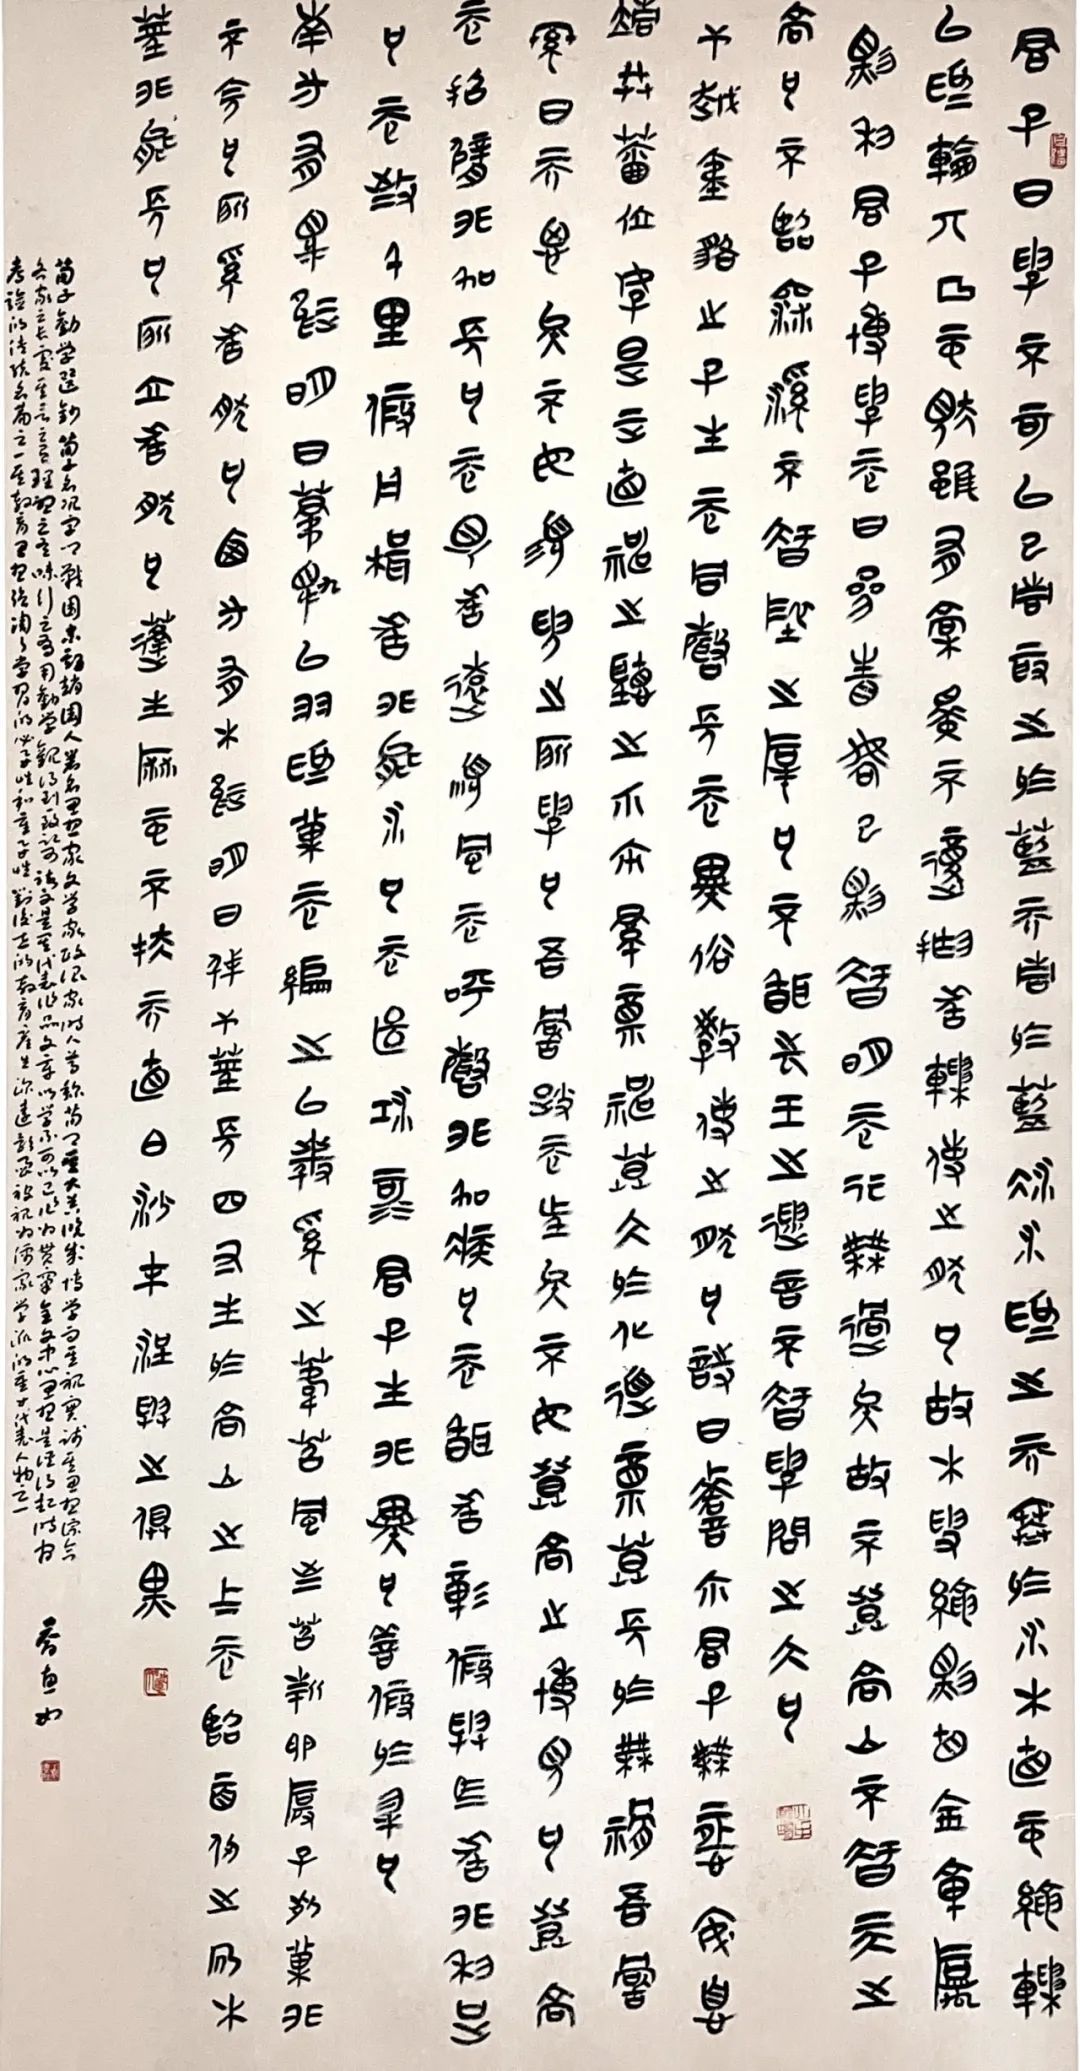 君子曰學不可以已青取之於藍而青於藍冰水爲之而寒於水木直中繩輮
以爲輪其曲中規雖有槁暴不復挺者輮使之然也故木受繩則直金就礪
則利君子博學而日參省己則智明而行無過矣故不登高山不智天之
高也不臨深溪不智地之厚也不聞先王之遺言不智學問之大也
干越夷貉之子生而同聲長而異俗教使之然也詩曰嗟爾君子無恆安息
靖共爾位好是正直神之聽之介爾景福神莫大於化道福莫長於無禍吾嘗
終日而思矣不如須臾之所學也吾嘗跂而望矣不如登高之博見也登高
而招臂非加長也而見者遠順風而呼聲非加疾也而聞者彰假輿馬者非利足
也而致千里假舟楫者非能水也而絕江河君子生非異也善假於物也
南方有鳥名曰蒙鳩以羽爲巢而編之以髮繫之葦苕風至苕折卵破子死巢非
不完也所繫者然也西方有木名曰射干莖長四寸生於高山之上而臨百仞之淵木
莖非能長也所立者然也蓬生麻中不扶而直白沙在涅與之俱黑
荀子勸學選鈔荀子名況字卿戰國末期趙國人著名思想家文學家政治家時人尊稱荀卿